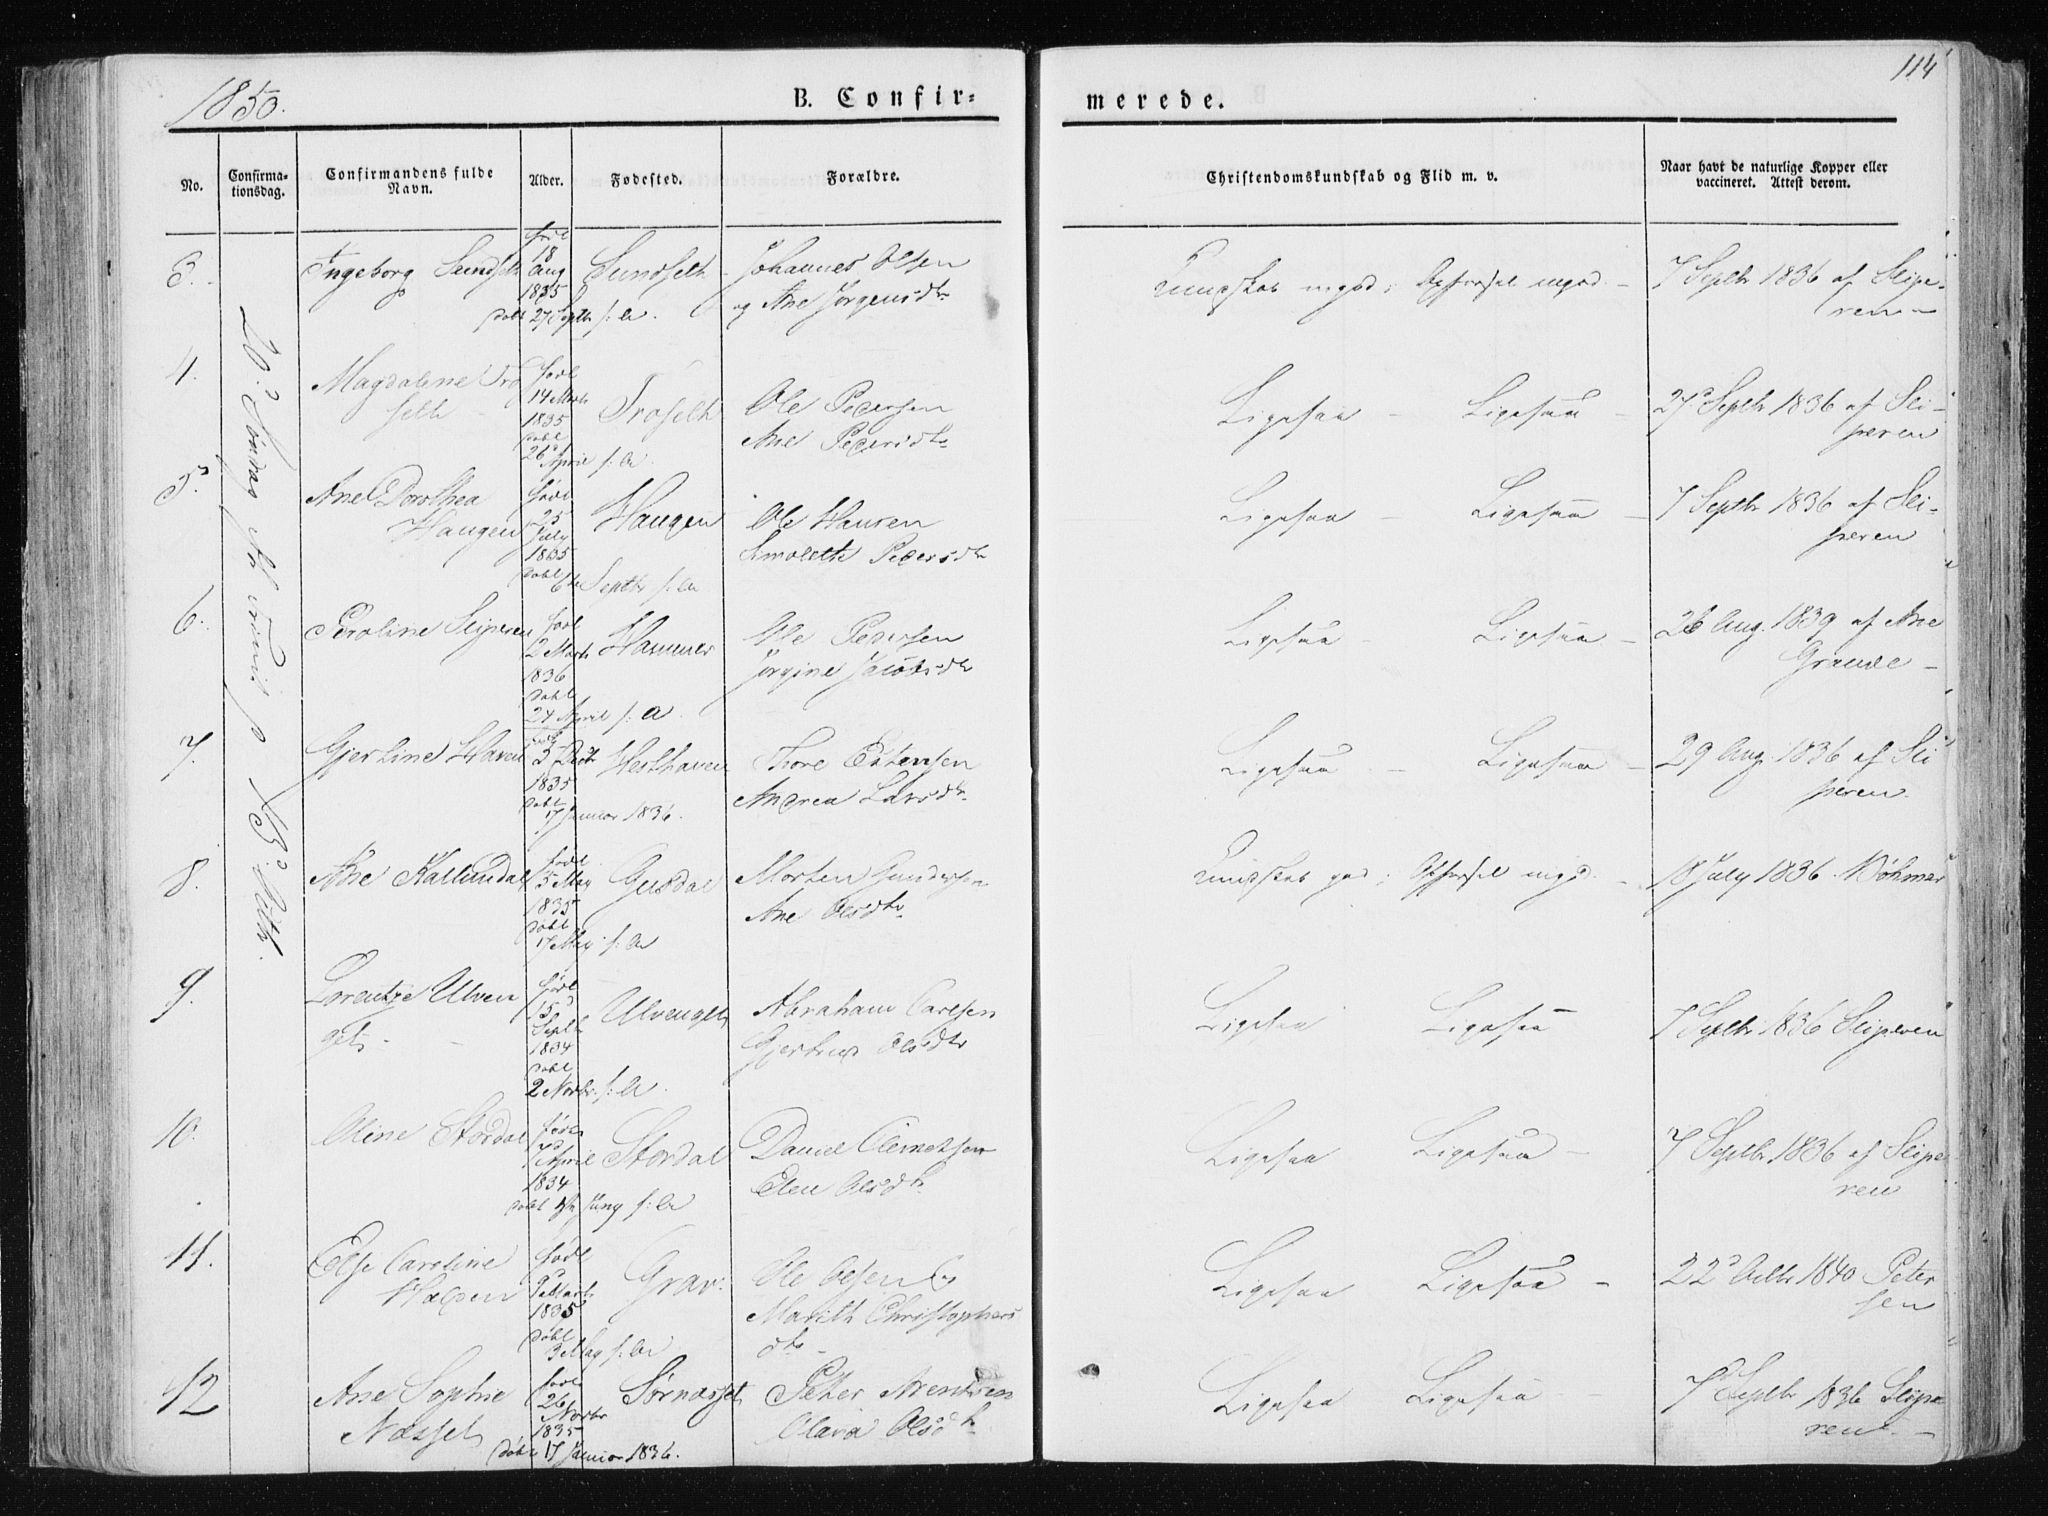 1850.
B. Confir-
merede.
114
No.
Confirma-
tionsdag.
Confirmandens fulde
Navn.
Alder.
Fødested.
Forældre.
Christendomskundskab og Flid m. v.
Naar havt de naturlige Kopper eller
vaccineret. Attest derom.
3.
Ingeborg Sundseth
født
18
Aug
1835
døbt 27 Septbr s: A.
Sundseth
Johannes Olsen
og Ane Jørgensdtr
Kundskab mgod; Opførsel mgod. -
7 Septbr 1836 af Sleipe-
ren -
20d Søndag
4.
Magdalene Trø
seth
født
14 Marts
1835
døbt
26d April s: A.
Trøseth
Ole Pedersen
Ane Pedersdtr
Ligesaa - Ligesaa -
27d Septbr 1836 af Slei-
peren
5.
Ane Dorothea
Haugen
født
25
July
1835
døbt 6te Septbr s: A
Haugen
Ole Hansen
Pedersdtr
Ligesaa - Ligesaa -
7 Septbr 1836 af Slei-
peren
6.
Peroline Sleiperen
født
2 Marts
1836
døbt
24 April s: A.
Hammer
Ole Pedersen
Jørgine Jacobsdtr
Ligesaa - Ligesaa -
26 Aug. 1839 af Ane
Grande -
7.
Gjertine Haven
født
3 Decbr
1835
døbt
17 Januar 1836.
Hesthaven
Thore Estensen
Andrea Larsdtr
Ligesaa - Ligesaa -
29 Aug. 1836 af Slei
peren.
8.
Ane Kallundal
født
5 May
1835
døbt
17 May s: A
Gusdal
Morten Gundersen
Ane Olsdtr
Kundskab god; Opførsel mgd. -
18 July 1836 Bøhmer
9.
Lorentze Ulven
get -
født
15d
Septbr
1834
døbt
2 Novbr. s: A
Ulvenget
Abraham Carlsen
Gjertrud Olsdtr
Ligesaa Ligesaa
7 Septbr 1836 Sleiperen
10.
Oline Stordal
født
7d April
1834
døbt Juny s: A
Stordal
Daniel Clemetsen
Elen Olsdtr
Ligesaa Ligesaa -
7 Septbr 1836 af Sleipe
ren
11.
Else Caroline
Halsen
født
9d Marts
1835
døbt
3 May s: A
Grav.
Ole Olsen
Marith Christophers
dtr -
Ligesaa Ligesaa -
22d Octbr 1840 Peter
sen
12
Ane Sophie
Næsset
født
26
Novbr
1835
døbt 17 Januar 1836.
Sørnæsset
Peter Arentsen
Olava Olsdtr
Ligesaa Ligesaa -
7d Septbr 1836 Sleipe
ren. -